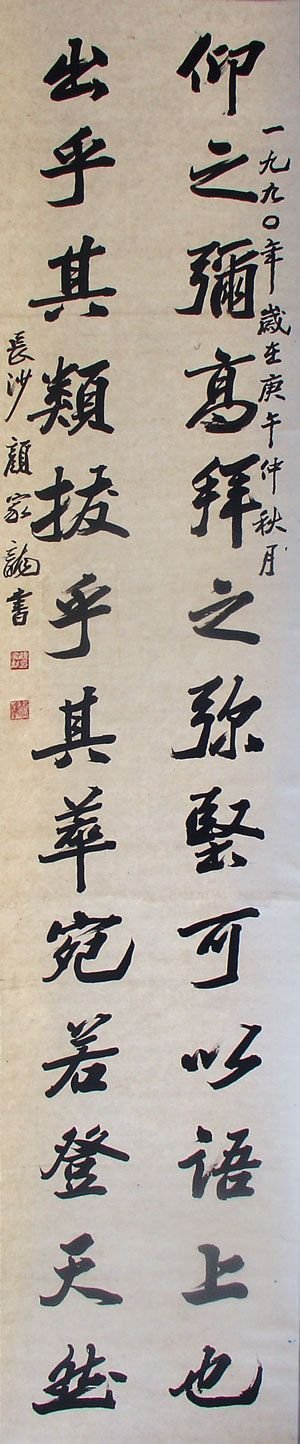 一九九〇年歲在庚午仲秋月
仰之彌高拜之弥堅可以語上也
出乎其類拔乎其萃宛若登天然
長沙顏家龍書